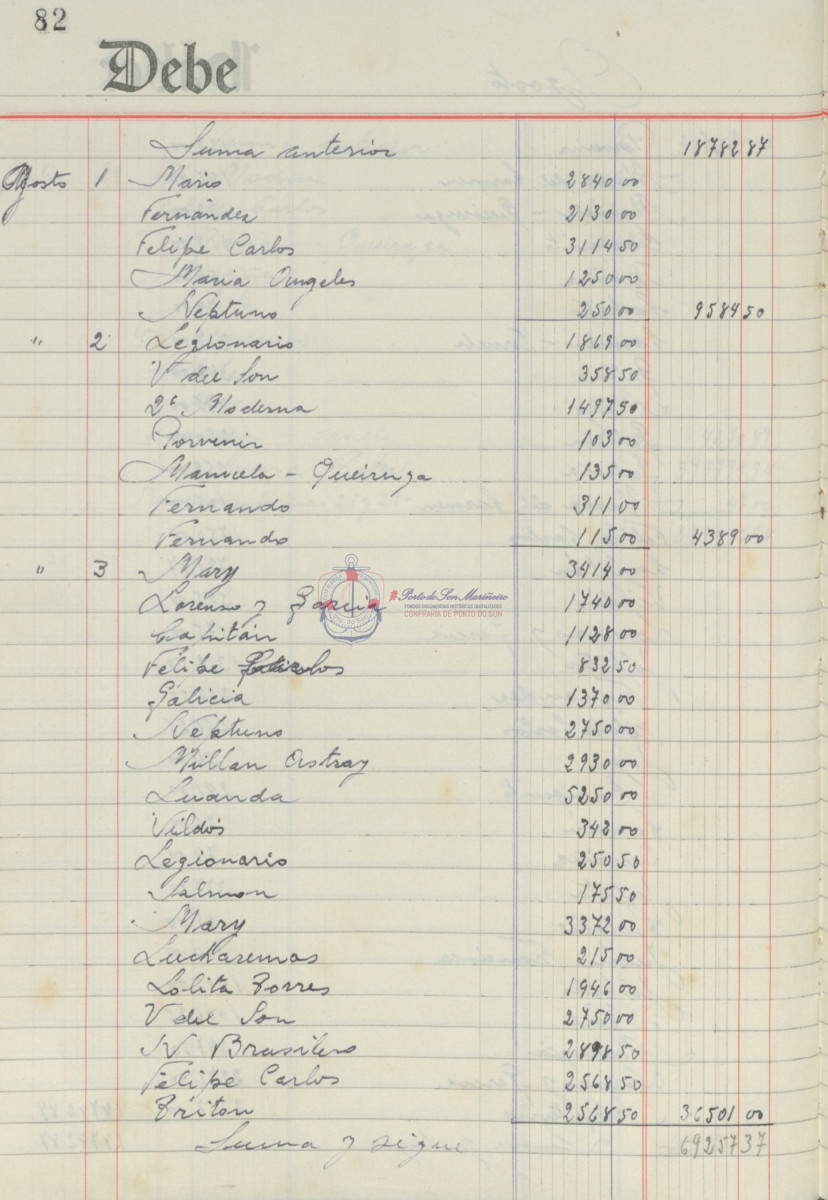 82
Debe
Suma anterior 18782 87
Agosto 1 Mario 2840 00
Fernández 2130 00
Felipe Carlos 3114 50
Maria Angeles 1250 00
Neptuno 250 00 9584 50
" 2 Legionario 1869 00
V del Son 358 50
2ª Moderna 1497 50
Porvenir 103 00
Manuela - Queiruga 135 00
Fernando 311 00
Fernando 115 00 4389 00
" 3 Mary 3414 00
Lorenzo y Garcia 1740 00
Capitán 1128 00
Felipe Carlos 832 50
Galicia 1370 00
Neptuno 2750 00
Millan Astray 2930 00
Luanda 5250 00
Vildós 342 00
Legionario 250 50
Salmon 175 50
Mary 3372 00
Lucharemos 215 00
Lolita Torres 1946 00
V del Son 2750 00
N Brasilero 2898 50
Felipe Carlos 2568 50
Triton 2568 50 36501 00
Suma y sigue 69257 37
#Porto do Son Mariñeiro
FONDOS DOCUMENTAIS HISTÓRICOS DIXITALIZADOS
CONFRARÍA DE PORTO DO SON